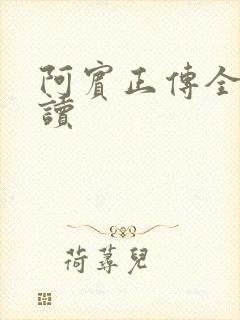 阿賓正傳全
讀
荷蕁兒